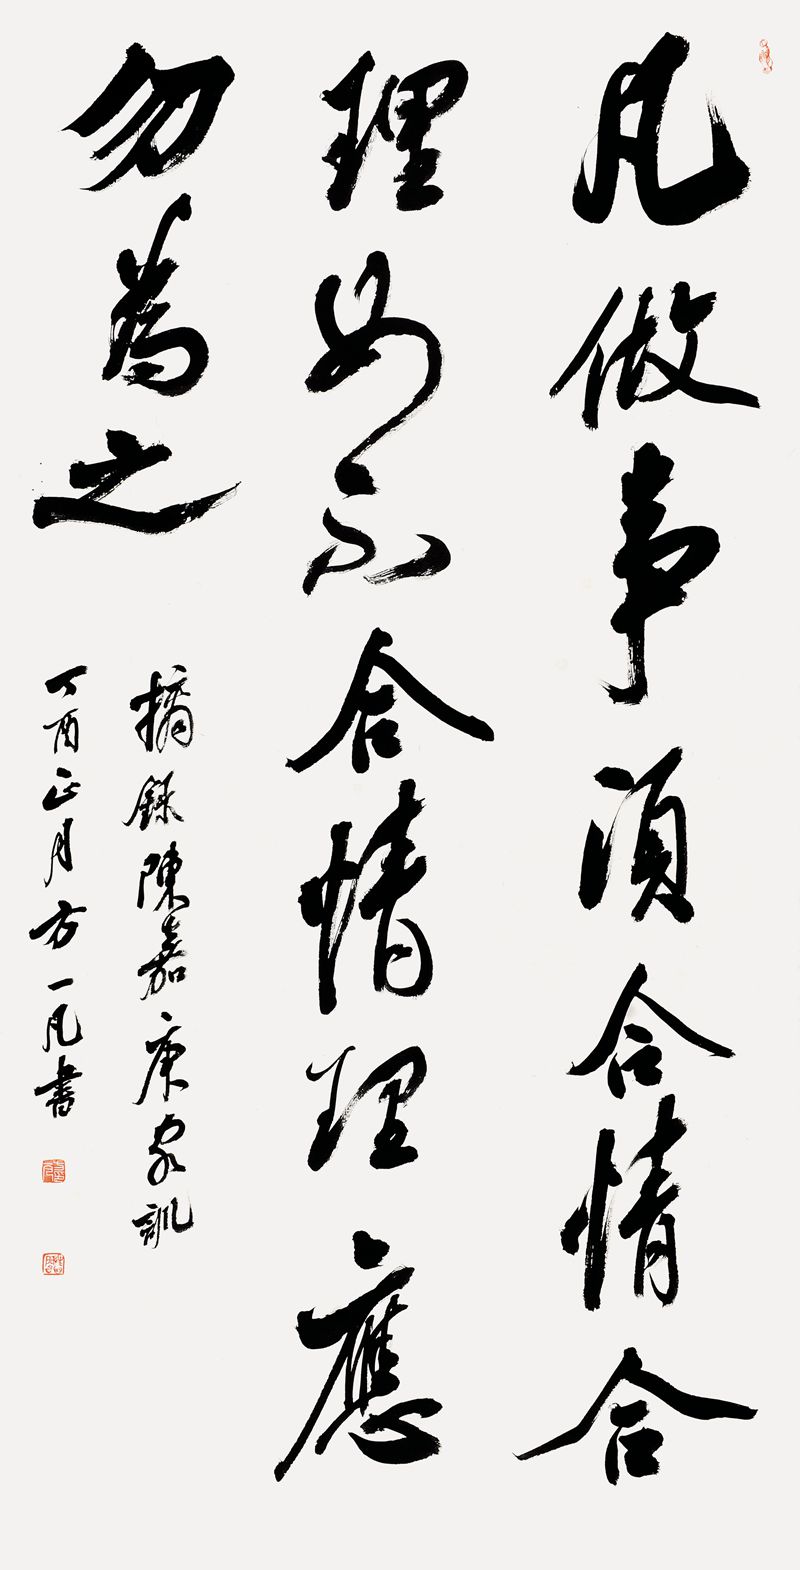 凡做事須合情合
理如不合情理應
勿為之
摘録陳嘉庚家訓
丁酉正月方一凡書